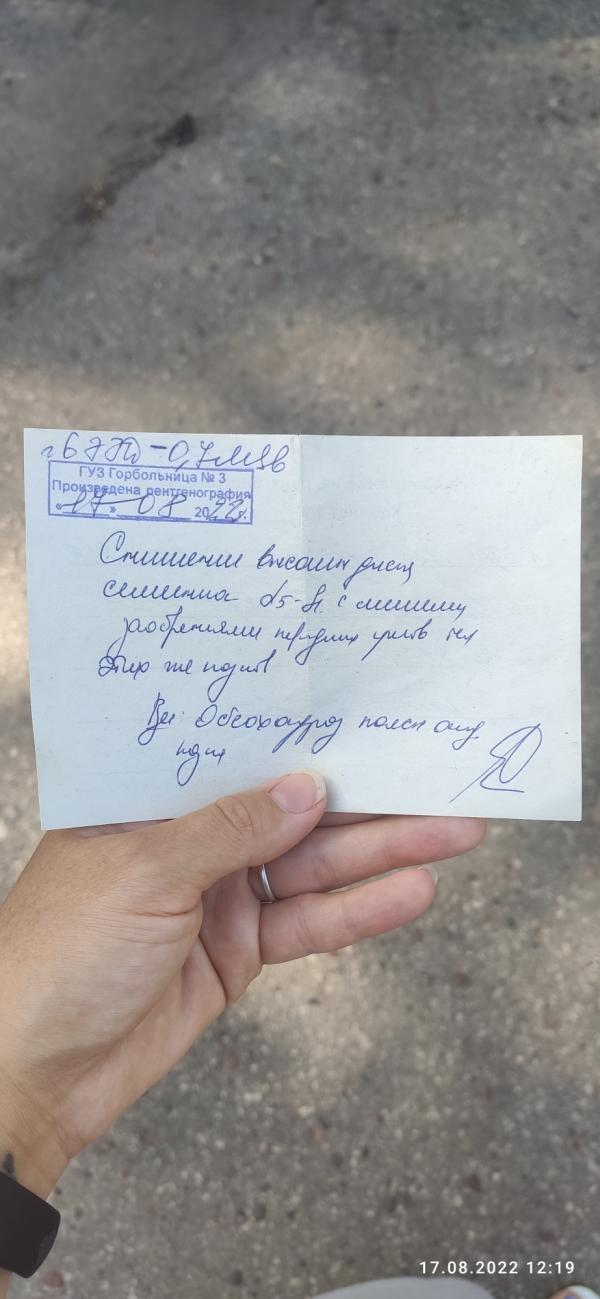 - 0,7 мЗв
ГУЗ Горбольница № 3
Произведена рентгенография
«17» 08 2022г.
Снижение высоты диска
сегмента L5-S1 с
заострениями передних углов тел
этих же позв
Зак: Остеохондроз поясн отд
позв
17.08.2022 12:19